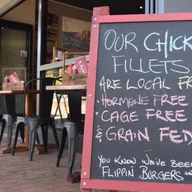 OUR CHICK
FILLETS
ARE LOCAL FR
HORMONE FREE
CAGE FREE
& GRAIN FED
YOU KNOW WE'VE BEE
FLIPPIN' BURGERS